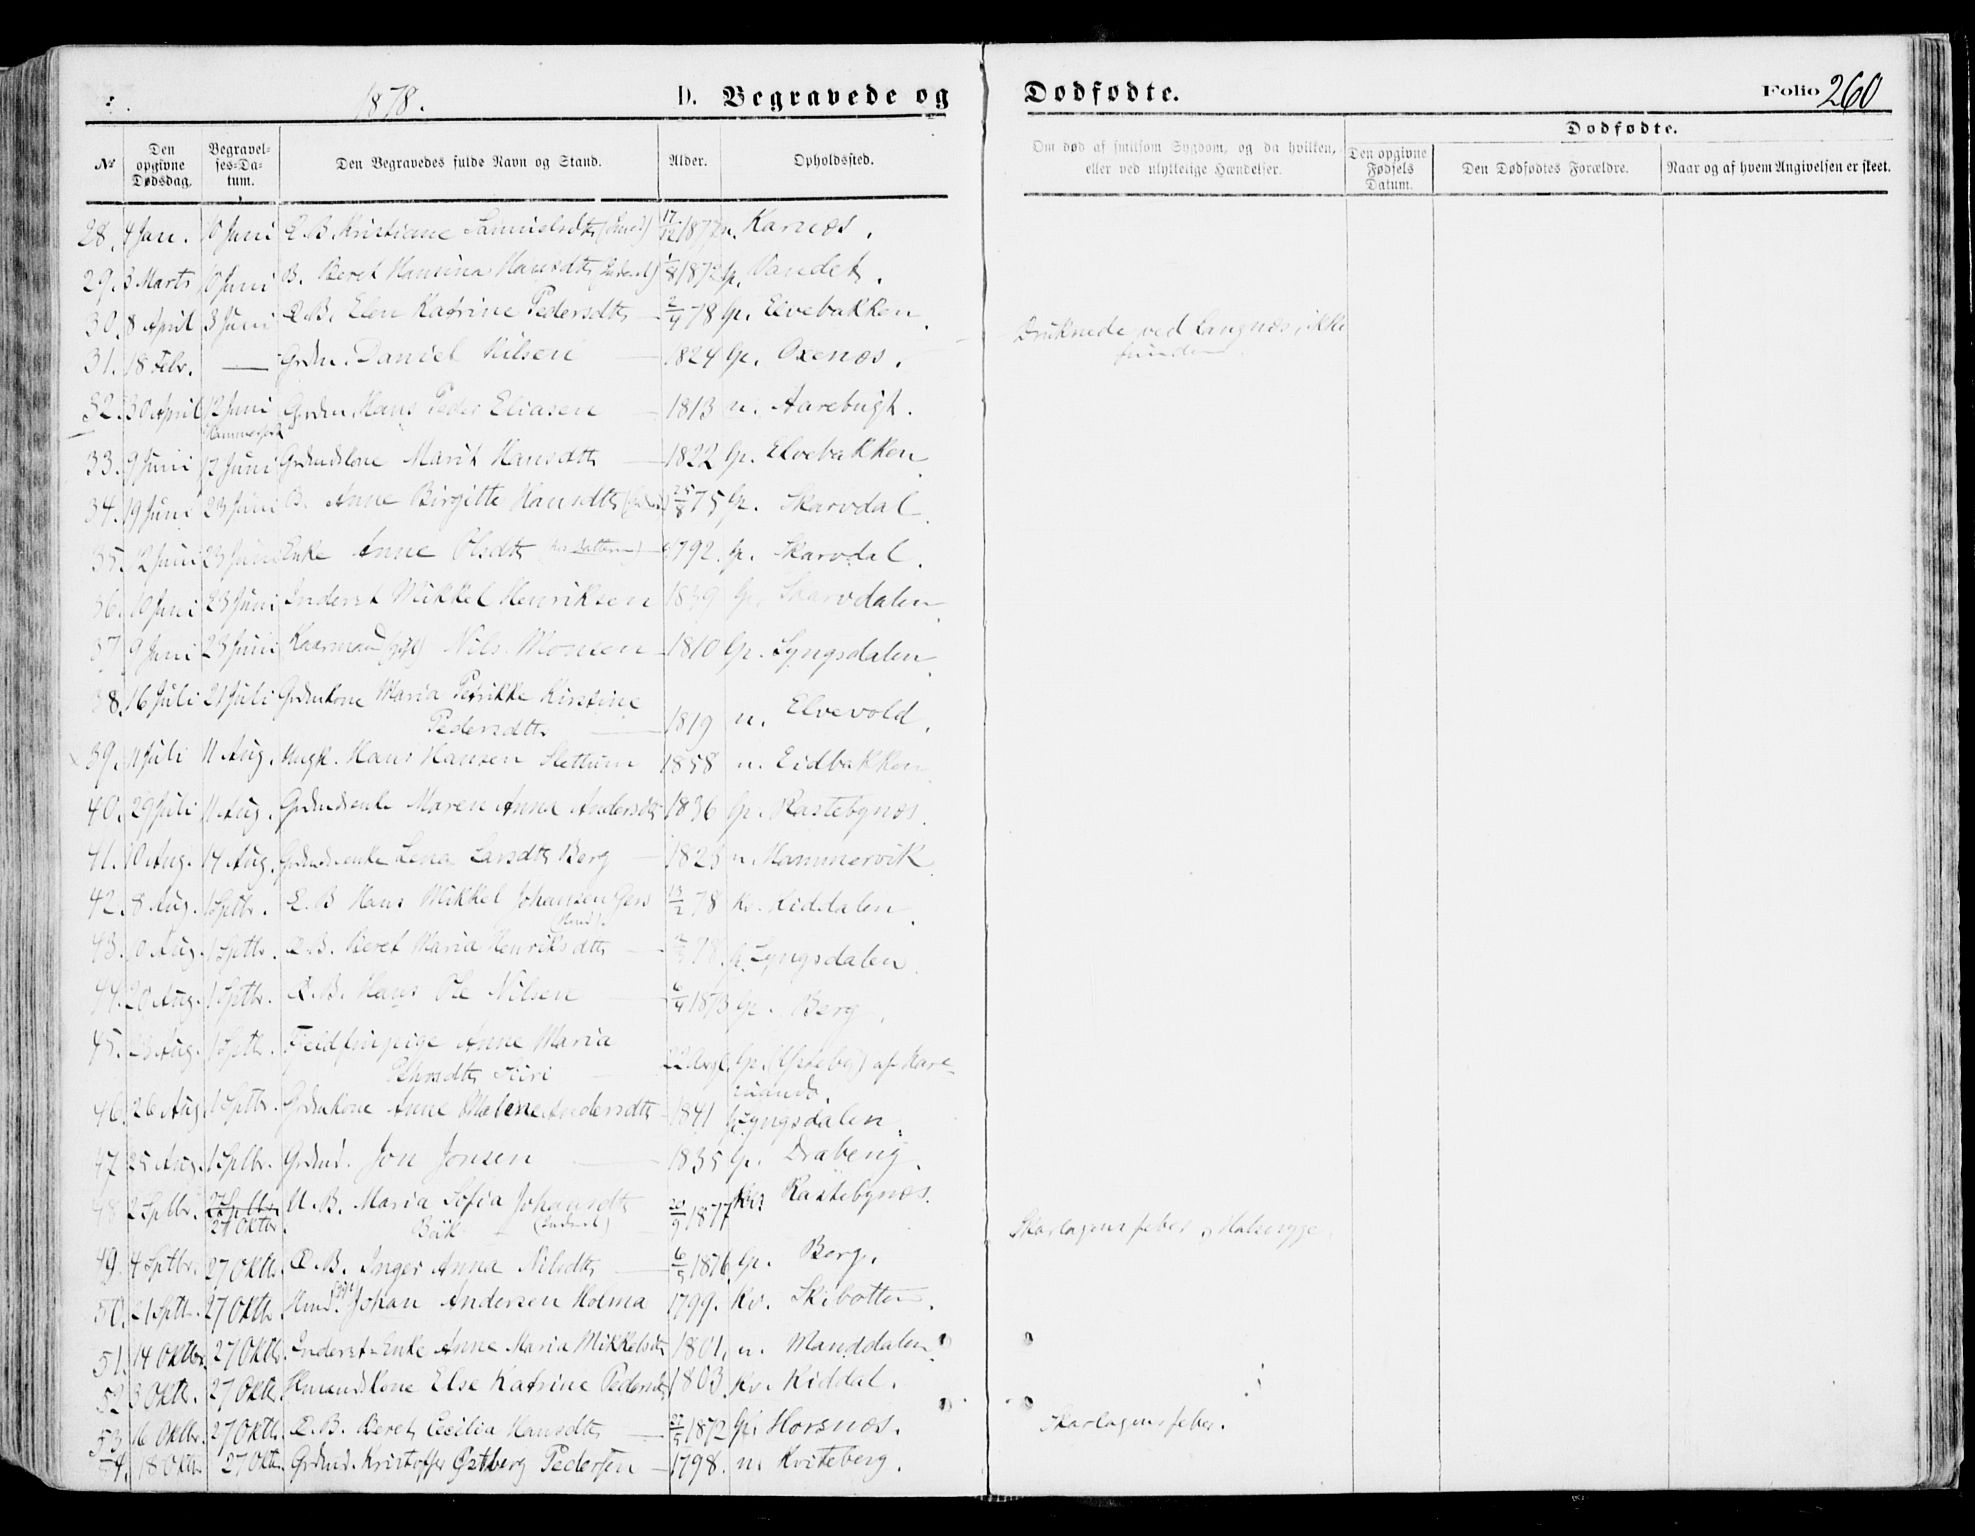 1878. D. Begravede og Dødfødte. Folio 260
No Den opgivne Dødsdag. Begravelses-Datum. Den Begravedes fulde Navn og Stand. Alder. Opholdssted. Om død af smitsom Sygdom, og da hvilken, eller ved ulykkelige Hændelser. Dødfødte. Den opgivne Fødsels Datum. Den Dødfødtes Forældre. Naar og af hvem Angivelsen er skeet.
28. 4 Jan. 10 Juni Æ.B. Kristiane Samuelsdtr 17/12 1877 n. Karnæs.
29. 3 Marts 10 Juni B. Beret Hansina Hansdtr 1/8 1872 Gp. Vandet.
30. 8 April 3 Juni Æ.B. Elen Katrine Pedersdtr 2/4 78 Gp. Elvebakken
31. 18 Febr. — Grdm. Daniel Nilsen 1824 Gp. Oxenæs. Druknede ved Langnæs, ikke funden.
32. 30 April 12 Juni Hammerfest Grdm. Hans Peder Eliasen 1813 n. Aarebugt.
33. 9 Juni 12 Juni Grdmdskone Marit Hansdtr 1822 Gp. Elvebakken
34. 19 Juni 23 Juni B. Anne Birgitte Hansdtr 25/8 75 Gp. Skarvdal.
35. 12 Juni 23 Juni Enke Anne Olsdtr 1792. Gp. Skarvdal.
36. 10 Juni 23 Juni Inderst Mikkel Henriksen 1839 Gp. Skarvdalen
37. 9 Juni 23 Juni Kaarmand (gift) Nils Monsen 1810 Gp. Lyngsdalen
38. 16 Juli 21 Juli Grdmkone Maria Petrikke Kirstine Pedersdtr 1819 n. Elvevold.
39. 11 Juli 11 Aug. Ungk. Hans Hansen Slettum 1858 n. Eidbakken
40. 29 Juli 11 Aug. Grdmdsenke Maren Anna Andersdtr 1836 Gp. Rastebynæs.
41. 10 Aug. 14 Aug. Grdmdsenke Lena Larsdtr Berg 1823 n. Hammervik
42. 8 Aug. 1 Sptbr. Æ.B Hans Mikkel Johansen 13/2 78 Kv. Kiddalen.
43. 10 Aug. 1 Sptbr. Æ.B. Beret Maria Henriksdtr 78. Lyngsdalen.
44. 20 Aug. 1 Sptbr. Æ.B. Hans Ole Nilsen 6/4 1873 Gp. Berg.
45. 23 Aug. 1 Sptbr. Anne Maria Siiri 22 Gp.
46. 26 Aug. 1 Sptbr. Grdmkone Anne Malene Andersdtr 1841 Lyngsdalen.
47. 25 Aug. 1 Sptbr. Grdmd. Jon Jonsen 1835 Gp. Draberg.
48. 2 Sptbr. 27 Oktbr. U.B. Maria Sofia Johansdtr Bäk 20/9 1877 Rastebynæs. Skarlagensfeber
49. 4 Sptbr. 27 Oktbr. Æ.B. Inger Anna Nilsdtr 6/5 1876 Gp. Berg.
50. 21 Sptbr. 27 Oktbr. Johan Andersen Holma 1799. Kv. Skibotten.
51. 14 Oktbr. 27 Oktbr. Inderst-Enke Anne Maria Mikkelsdtr 1801. n. Manddalen
52 3 Oktbr. 27 Oktbr. Hmandskone Else Katrine Pedersdtr 1803. Kv. Kiddal.
53. 16 Oktbr. 27 Oktbr. Æ.B. Beret Cecilia Hansdtr 27/5 1872 Gp. Horsnæs. Skarlagensfeber.
54. 18 Oktbr. 27 Oktbr. Grdmd. Kristoffer Østberg Pedersen 1798. n. Kviteberg.